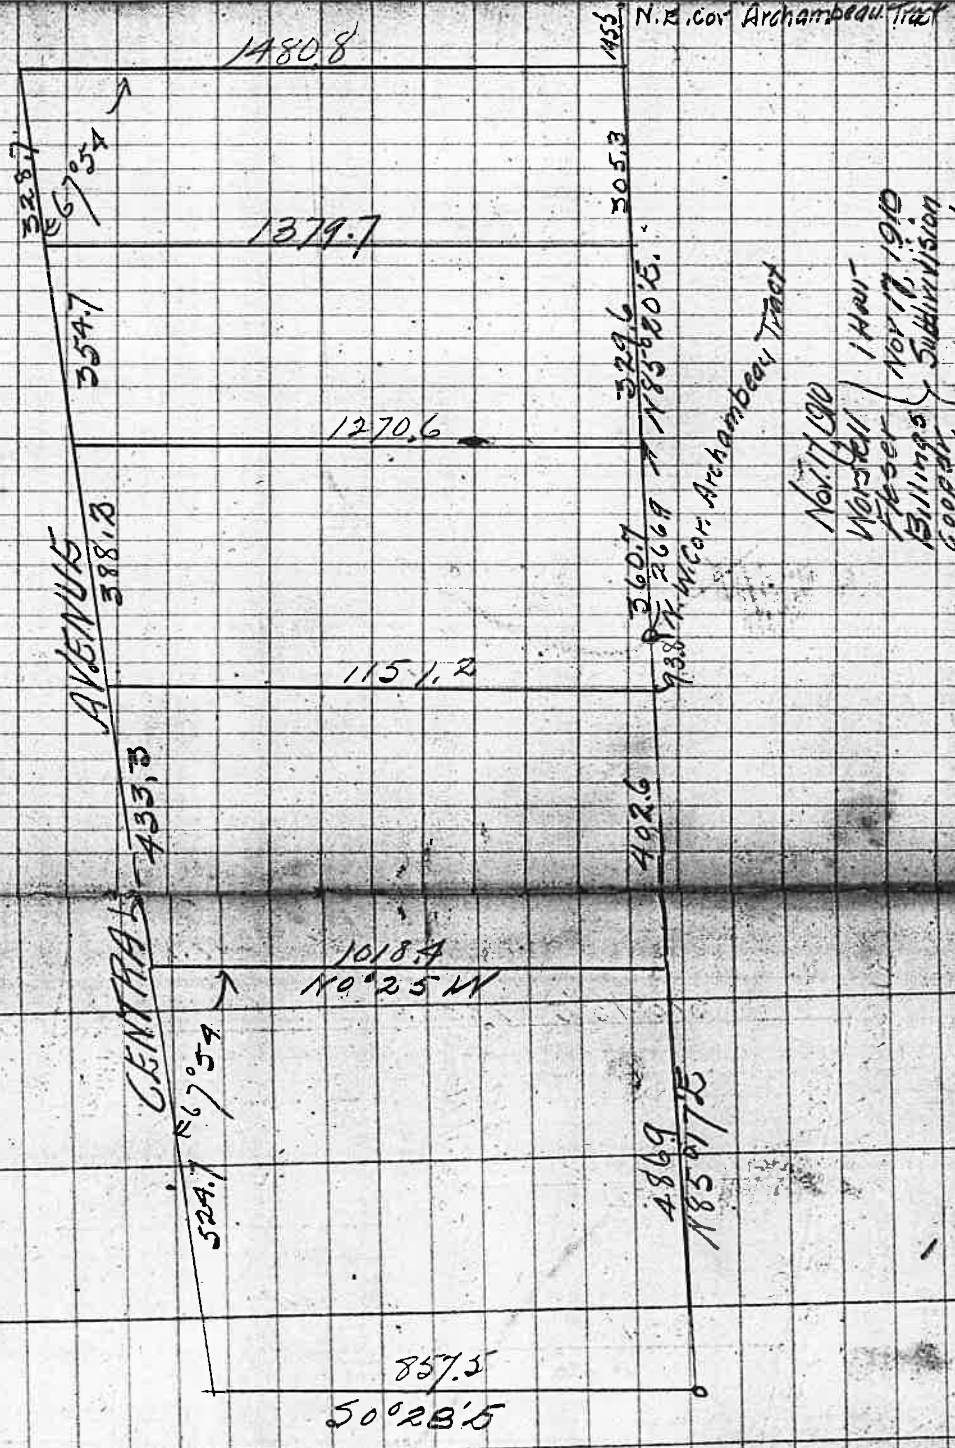 N.E. cor Archambeau Tract
145.5
1480.8
328.7
67°54
305.3
1379.7
354.7
329.6
N85°20'E.
1270.6
388.3
360.7
2669
N.W. Cor. Archambeau Tract
93.8
1151.2
AVENUE
433.3
402.6
CENTRAL
1018.4
N0°25W
67°54
524.7
4869
N85°17'E
857.5
S0°28'E
Nov. 17, 1910
1 Hour
Nov 17, 1910
Billings
Subdivision